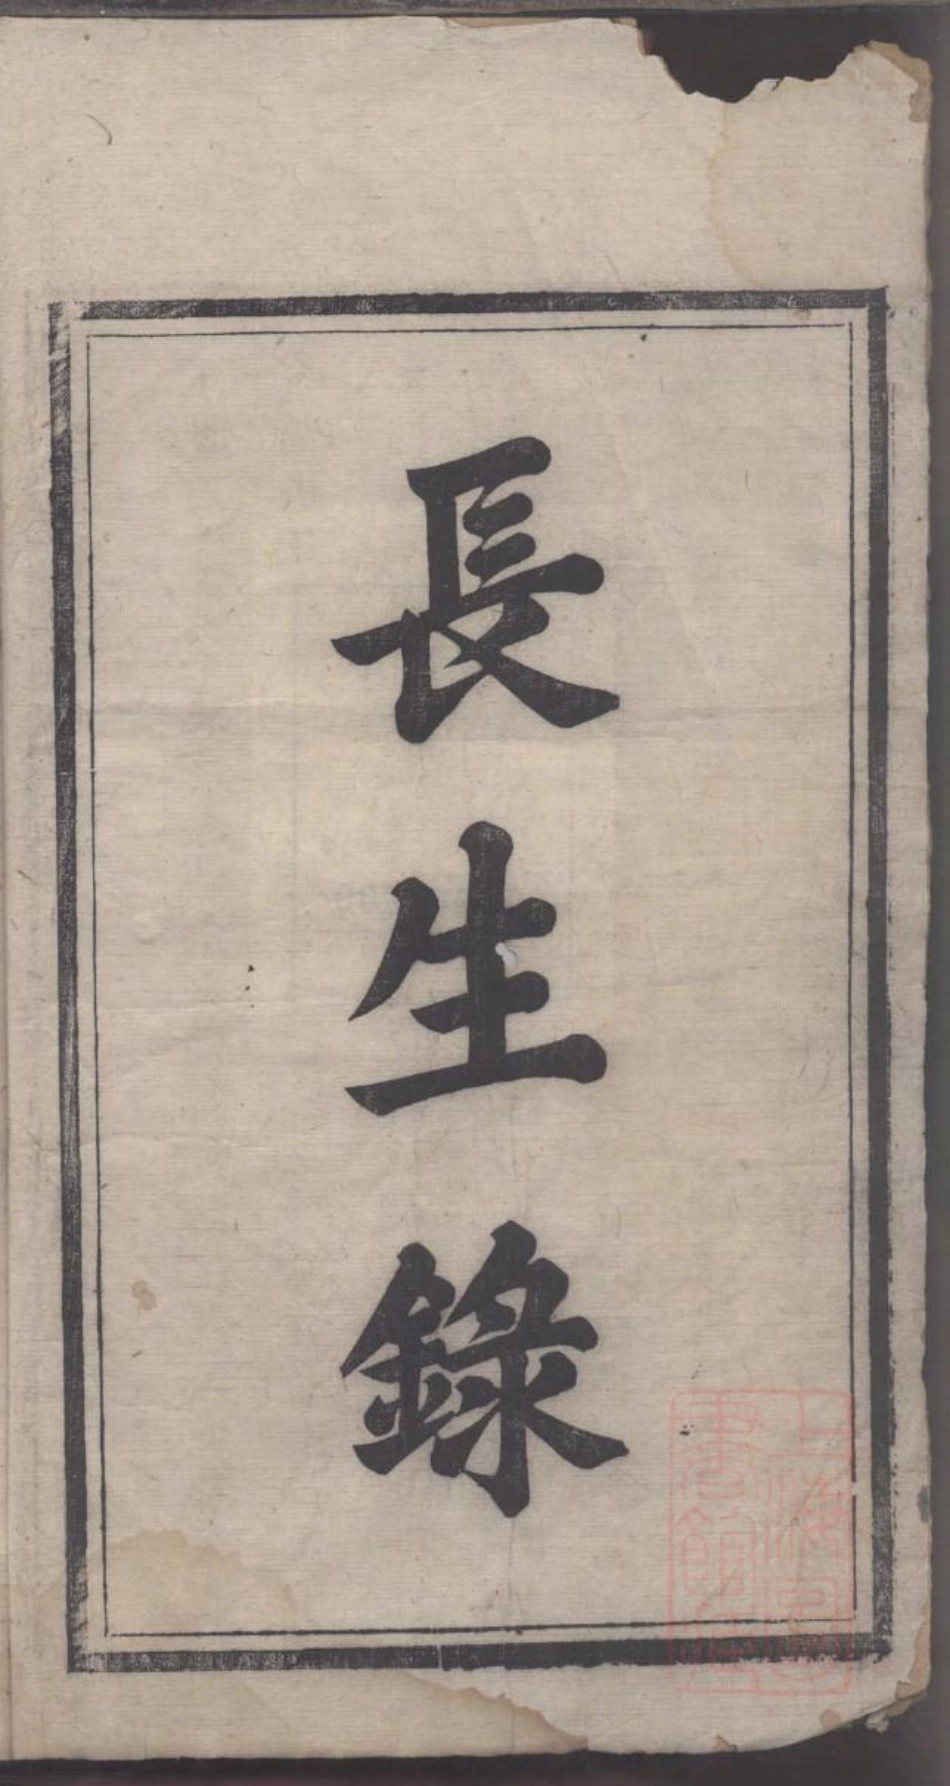 長生錄
上海圖書館藏